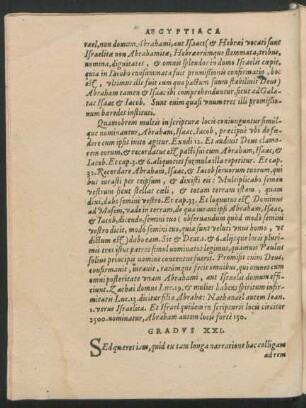 AEGYPTIACA
rael, non domum Abrahami, aut Isaaci (& Hebræi vocati sunt
Israelitæ non Abrahamitæ, Hebræorumque stemmata, tribus,
nomina, dignitates, & omnis splendor in domo Israelis capit,
quia in Iacobo consummata fuit promissionis confirmatio, hoc
est, ultimus ille fuit cum quo pactum suum stabilivit Deus)
Abraham tamen & Isaac ibi comprehenduntur, sicut ad Gala-
tas Isaac & Iacob. Sunt enim quasi unum tres illi promissio-
num hæredes instituti.
Quamobrem multis in scripturæ locis coniunguntur simul-
que nominantur, Abraham, Isaac, Iacob, præcipuè ubi de fæ-
dere cum ipsis inito agitur. Exodi 12. Et audivit Deus clamo-
rem eorum, & recordatus est pacti sui cum Abraham, Isaac, &
Iacob. Et cap. 3. & 6. aliquoties formula illa repetitur. Et cap.
32. Recordare Abraham, Isaac, & Iacob servorum tuorum, qui-
bus iurasti per teipsum, & dixisti eis: Multiplicabo semen
vestrum sicut stellas cæli, & totam terram istam, quam
dixi, dabo semini vestro. Et cap. 33. Et loquutus est Dominus
ad Mosem, vade in terram, de qua iuravi ipsis Abraham, Isaac,
& Iacob, dicendo, semini tuo (observandum quod modò semini
vostro dicit, modò semini tuo, quia sunt velut unus homo, ut
dictum est) dabo eam. Sic & Deut. 1. & 6. aliquoties plurí-
mis tres istos patres simul nominatos legimus, quamvis Paulus
solius principis nomine contentus fuerit. Promisit enim Deus,
confirmavit, iuravit, raximque fecit omnibus, qui omnes cum
omni posteritate unam Abrahami, aut Israelis domum effi-
ciunt. Zachæi domus Luc. 19. & mulier habens spiritum infir-
mitatis Luc. 13. dicitur filia Abrahæ: Nathanael autem Ioan.
1. verus Israelita. Et Israel quidem in scripturis locis circiter
2500. nominatur, Abraham autem locis fortè 150.
GRADUS XXI.
Sed quæret iam, quid ex tam longa narratione hac colligam
ad rem